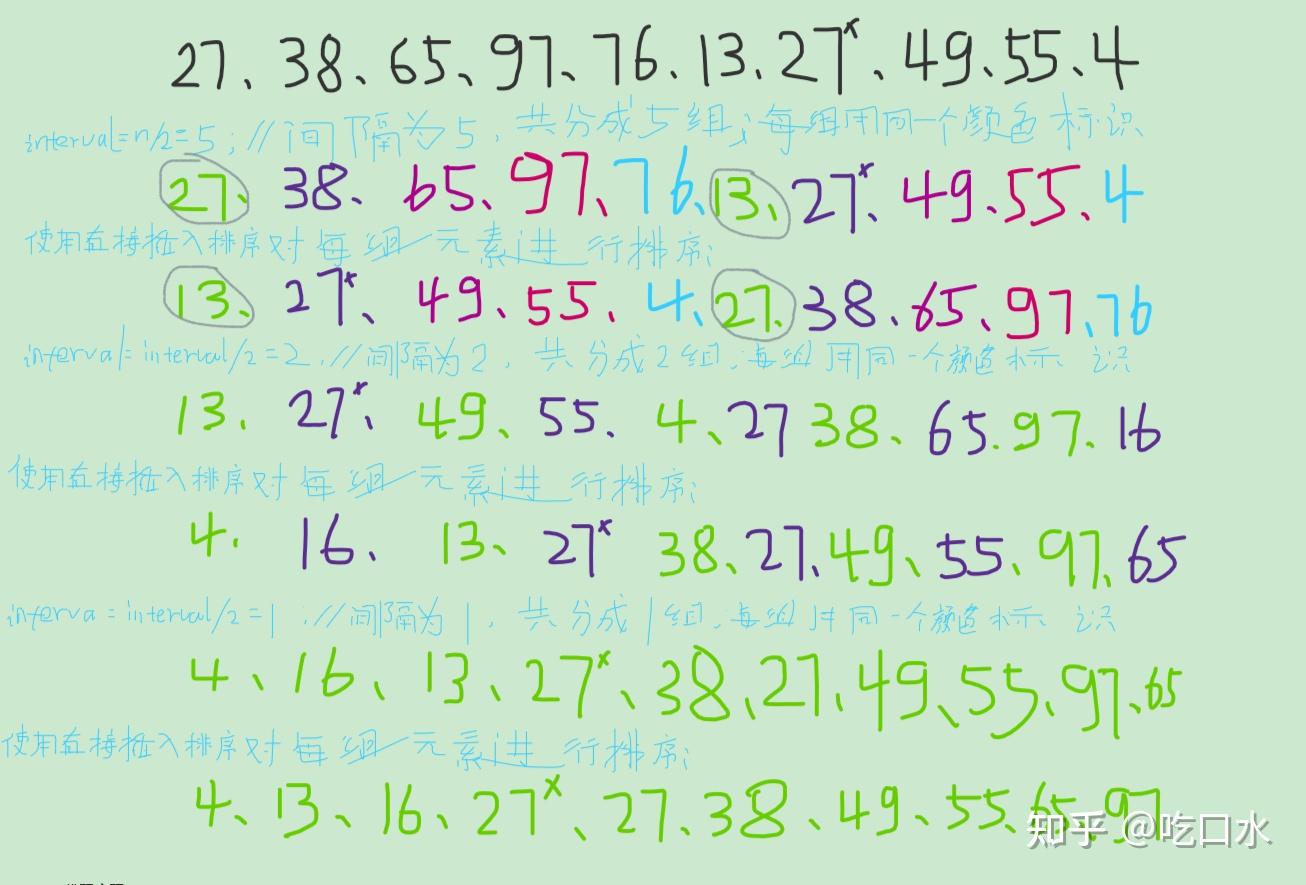 27、38、65、97、76、13、27*、49、55、4
interval=n/2=5;//间隔为5，共分成5组;每组用同一个颜色标识
27、38、65、97、76、13、27*、49、55、4
使用直接插入排序对每组元素进行排序;
13、27*、49、55、4、27、38、65、97、76
interval=interval/2=2，//间隔为2，共分成2组;每组用同一个颜色标识
13、27*、49、55、4、27 38、65、97、16
使用直接插入排序对每组元素进行排序;
4、16、13、27* 38、27、49、55、97、65
interva=interval/2=1;//间隔为1，共分成1组;每组用同一个颜色标识
4、16、13、27*、38、27、49、55、97、65
使用直接插入排序对每组元素进行排序;
4、13、16、27*、27、38、49、55、65、97
知乎 @吃口水